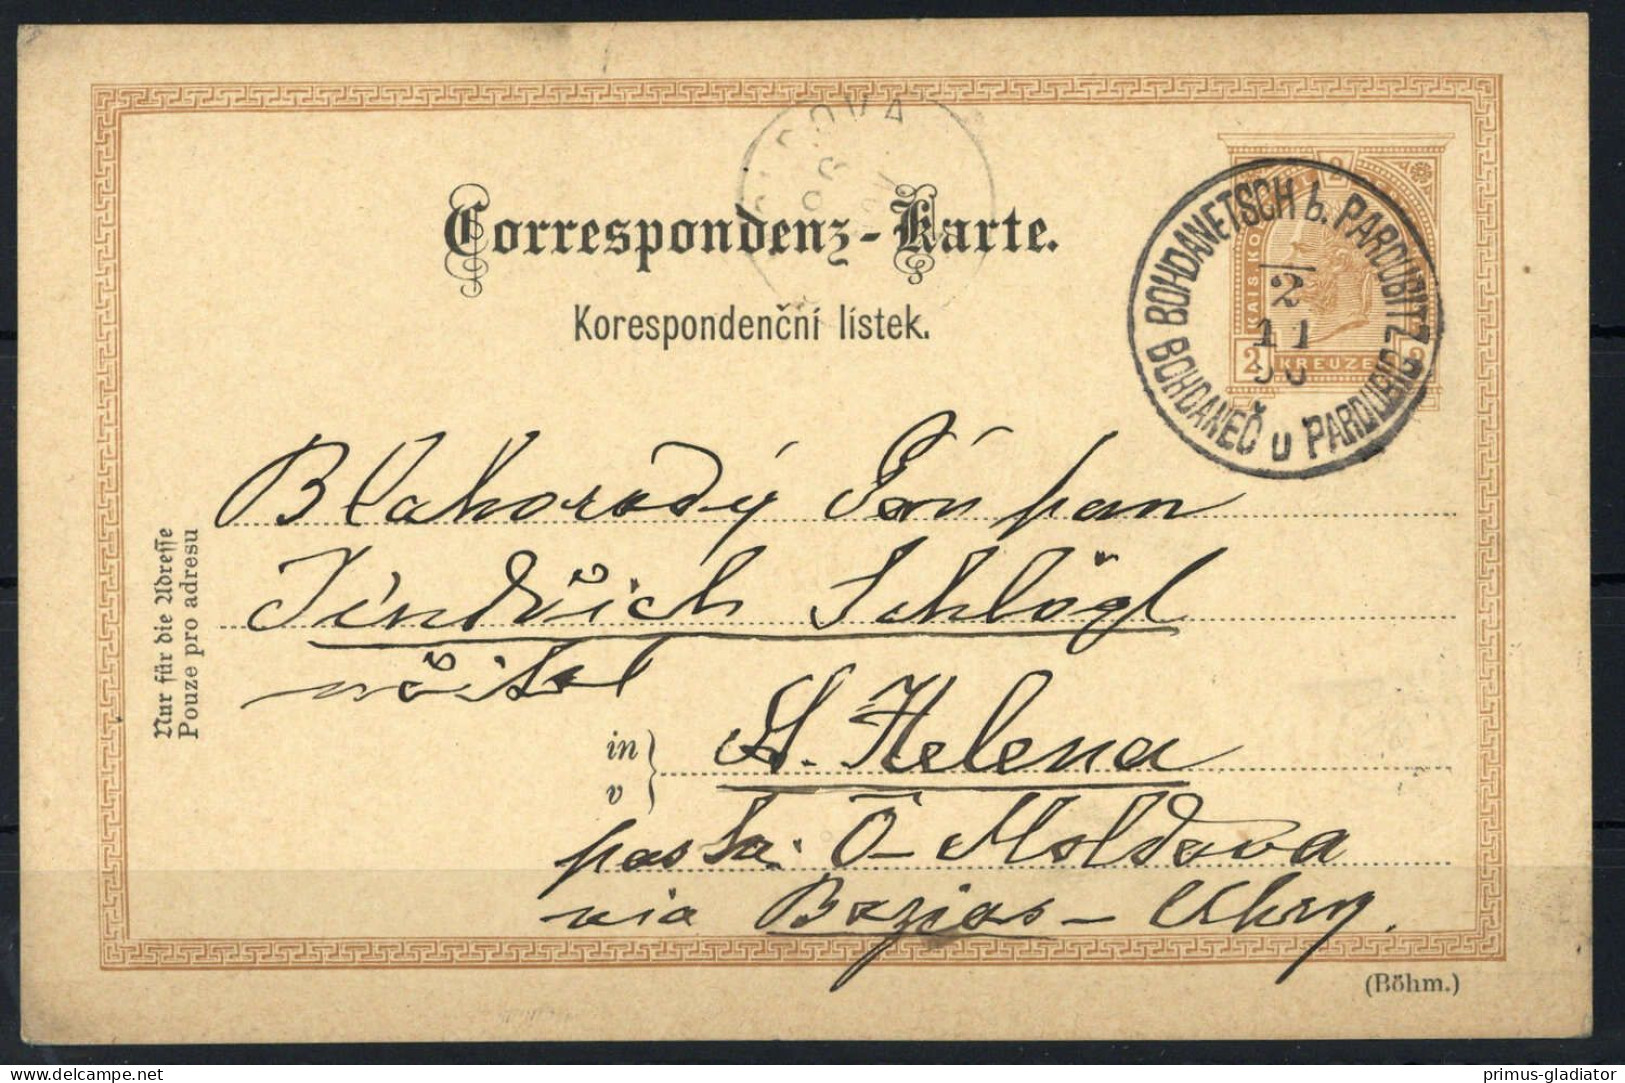 Correspondenz-Karte.
Korespondenční lístek.
KAIS KO
2 KREUZE
BOHDANETSCH b. PARDUBITZ
BOHDANEČ u PARDUBIC
2
11
DOVA
Nur für die Adresse
Pouze pro adresu
Blahorodý pan
Jindřich Schlögl
učitel
in
v
St. Helena
pošta: Ó-Moldova
via Bazias - Uhry.
(Böhm.)
primus-gladiator